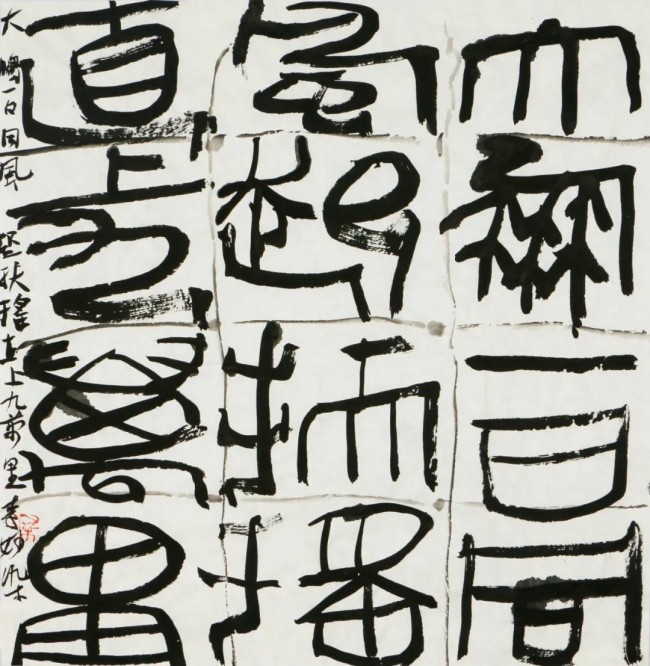 大鵬一日同
風起扶搖
直上九萬里
大鵬一日同風起扶搖直上九萬里